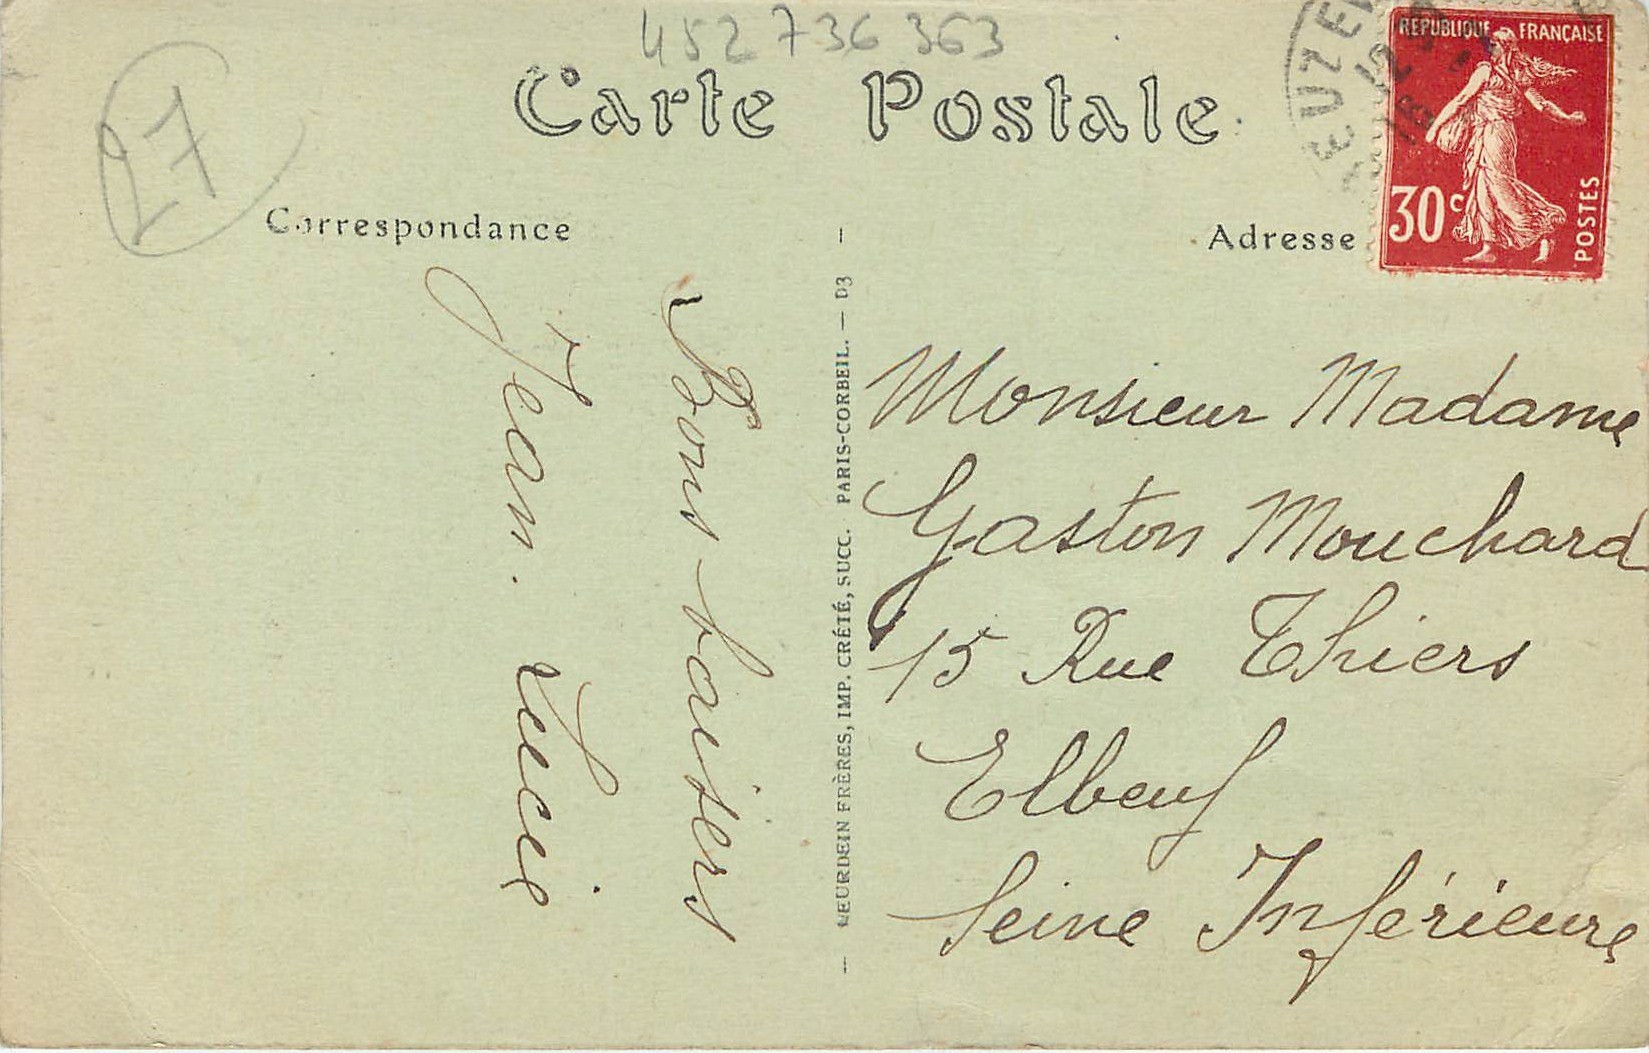 452 736 363
27
Carte Postale
Correspondance
Adresse
RÉPUBLIQUE FRANÇAISE
30c
POSTES
Bons baisers
Jean. Lucie
NEURDEIN FRÈRES, IMP. CRÉTÉ, SUCC. PARIS-CORBEIL. — D3
Monsieur Madame
Gaston Mouchard
15 Rue Thiers
Elbeuf
Seine Inférieure